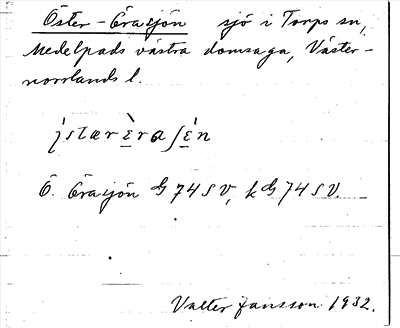 Öster-Eräsjön sjö i Torps sn,
Medelpads västra domsaga, Väster-
norrlands l.
Ö. Eräsjön G 74 SV, k G 74 SV.
Valter Jansson 1932.